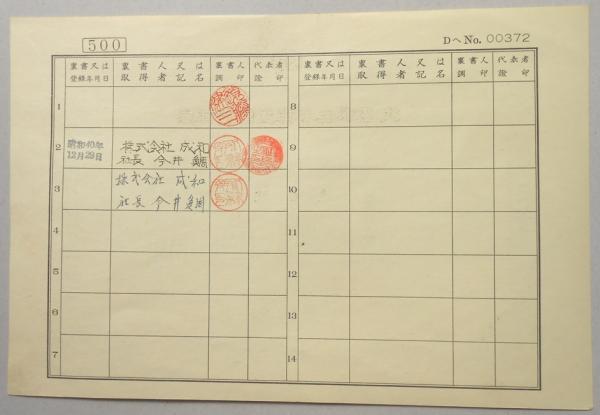 500
DへNo. 00372
裏書又は
登録年月日
裏書人又は
取得者記名
裏書人
調印
代表者
證印
裏書又は
登録年月日
裏書人又は
取得者記名
裏書人
調印
代表者
證印
1
2
昭和40年
12月29日
株式会社 成和
社長 今井
3
株式会社 成和
社長 今井
4
5
6
7
8
9
10
11
12
13
14